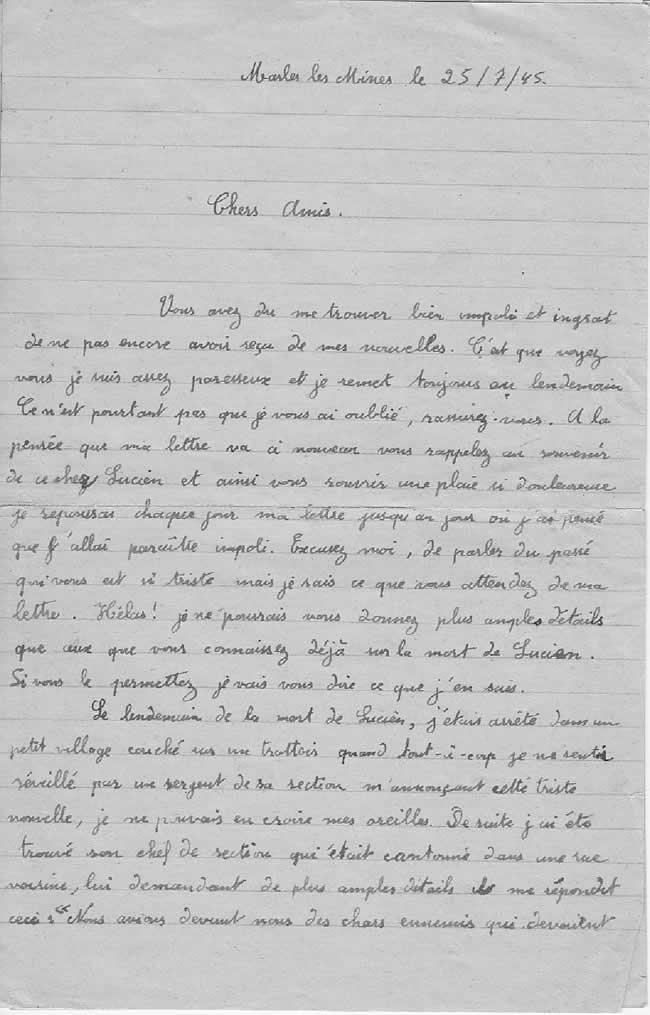 Marles les Mines le 25/7/45.
Chers Amis.
Vous avez du me trouver bien impoli et ingrat
de ne pas encore avoir reçu de mes nouvelles. C'est que voyez
vous je suis assez paresseux et je remet toujours au lendemain
Ce n'est pourtant pas que je vous ai oublié, rassurez-vous. A la
pensée que ma lettre va à nouveau vous rappelez au souvenir
de ce cher Lucien et ainsi vous rouvrir une plaie si douloureuse
je repoussai chaque jour ma lettre jusqu'au jour où j'ai pensé
que j'allai paraître impoli. Excusez moi, de parler du passé
qui vous est si triste mais je sais ce que vous attendez de ma
lettre. Hélas! je ne pourrais vous donnez plus amples détails
que ceux que vous connaissez déjà sur la mort de Lucien.
Si vous le permettez je vais vous dire ce que j'en sais.
Le lendemain de la mort de Lucien, j'étais arrêté dans un
petit village couché sur un trottoir quand tout-à-coup je me sentis
réveillé par un sergent de sa section m'annonçant cette triste
nouvelle, je ne pouvais en croire mes oreilles. De suite j'ai été
trouvé son chef de section qui était cantonné dans une rue
voisine, lui demandant de plus amples détails me répondit
ceci : "Nous avions devant nous des chars ennemis qui devaient